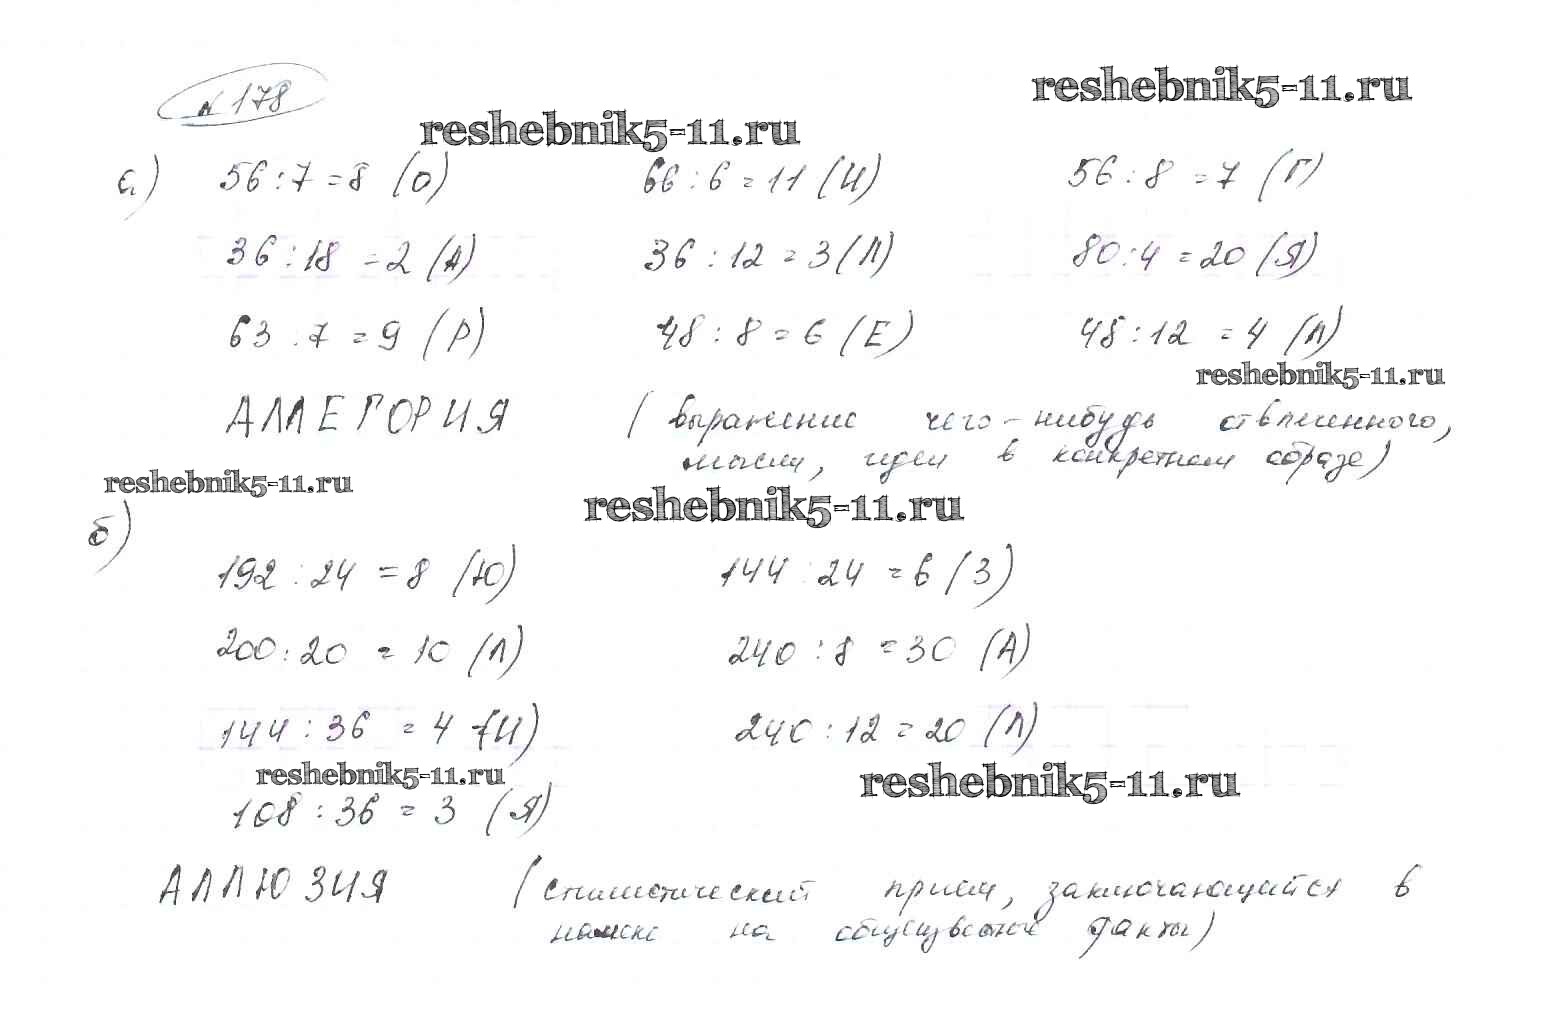 № 178
reshebnik5-11.ru
reshebnik5-11.ru
а) 56 : 7 = 8 (О) 66 : 6 = 11 (И) 56 : 8 = 7 (Г)
36 : 18 = 2 (А) 36 : 12 = 3 (Л) 80 : 4 = 20 (Я)
63 : 7 = 9 (Р) 48 : 8 = 6 (Е) 48 : 12 = 4 (Л)
reshebnik5-11.ru
АЛЛЕГОРИЯ (выражение чего-нибудь отвлеченного,
мысли, идеи в конкретном образе)
reshebnik5-11.ru
reshebnik5-11.ru
б)
192 : 24 = 8 (Ю) 144 : 24 = 6 (З)
200 : 20 = 10 (Л) 240 : 8 = 30 (А)
144 : 36 = 4 (И) 240 : 12 = 20 (Л)
reshebnik5-11.ru
reshebnik5-11.ru
108 : 36 = 3 (Я)
АЛЛЮЗИЯ (стилистический прием, заключающийся в
намеке на общеизвестные факты)